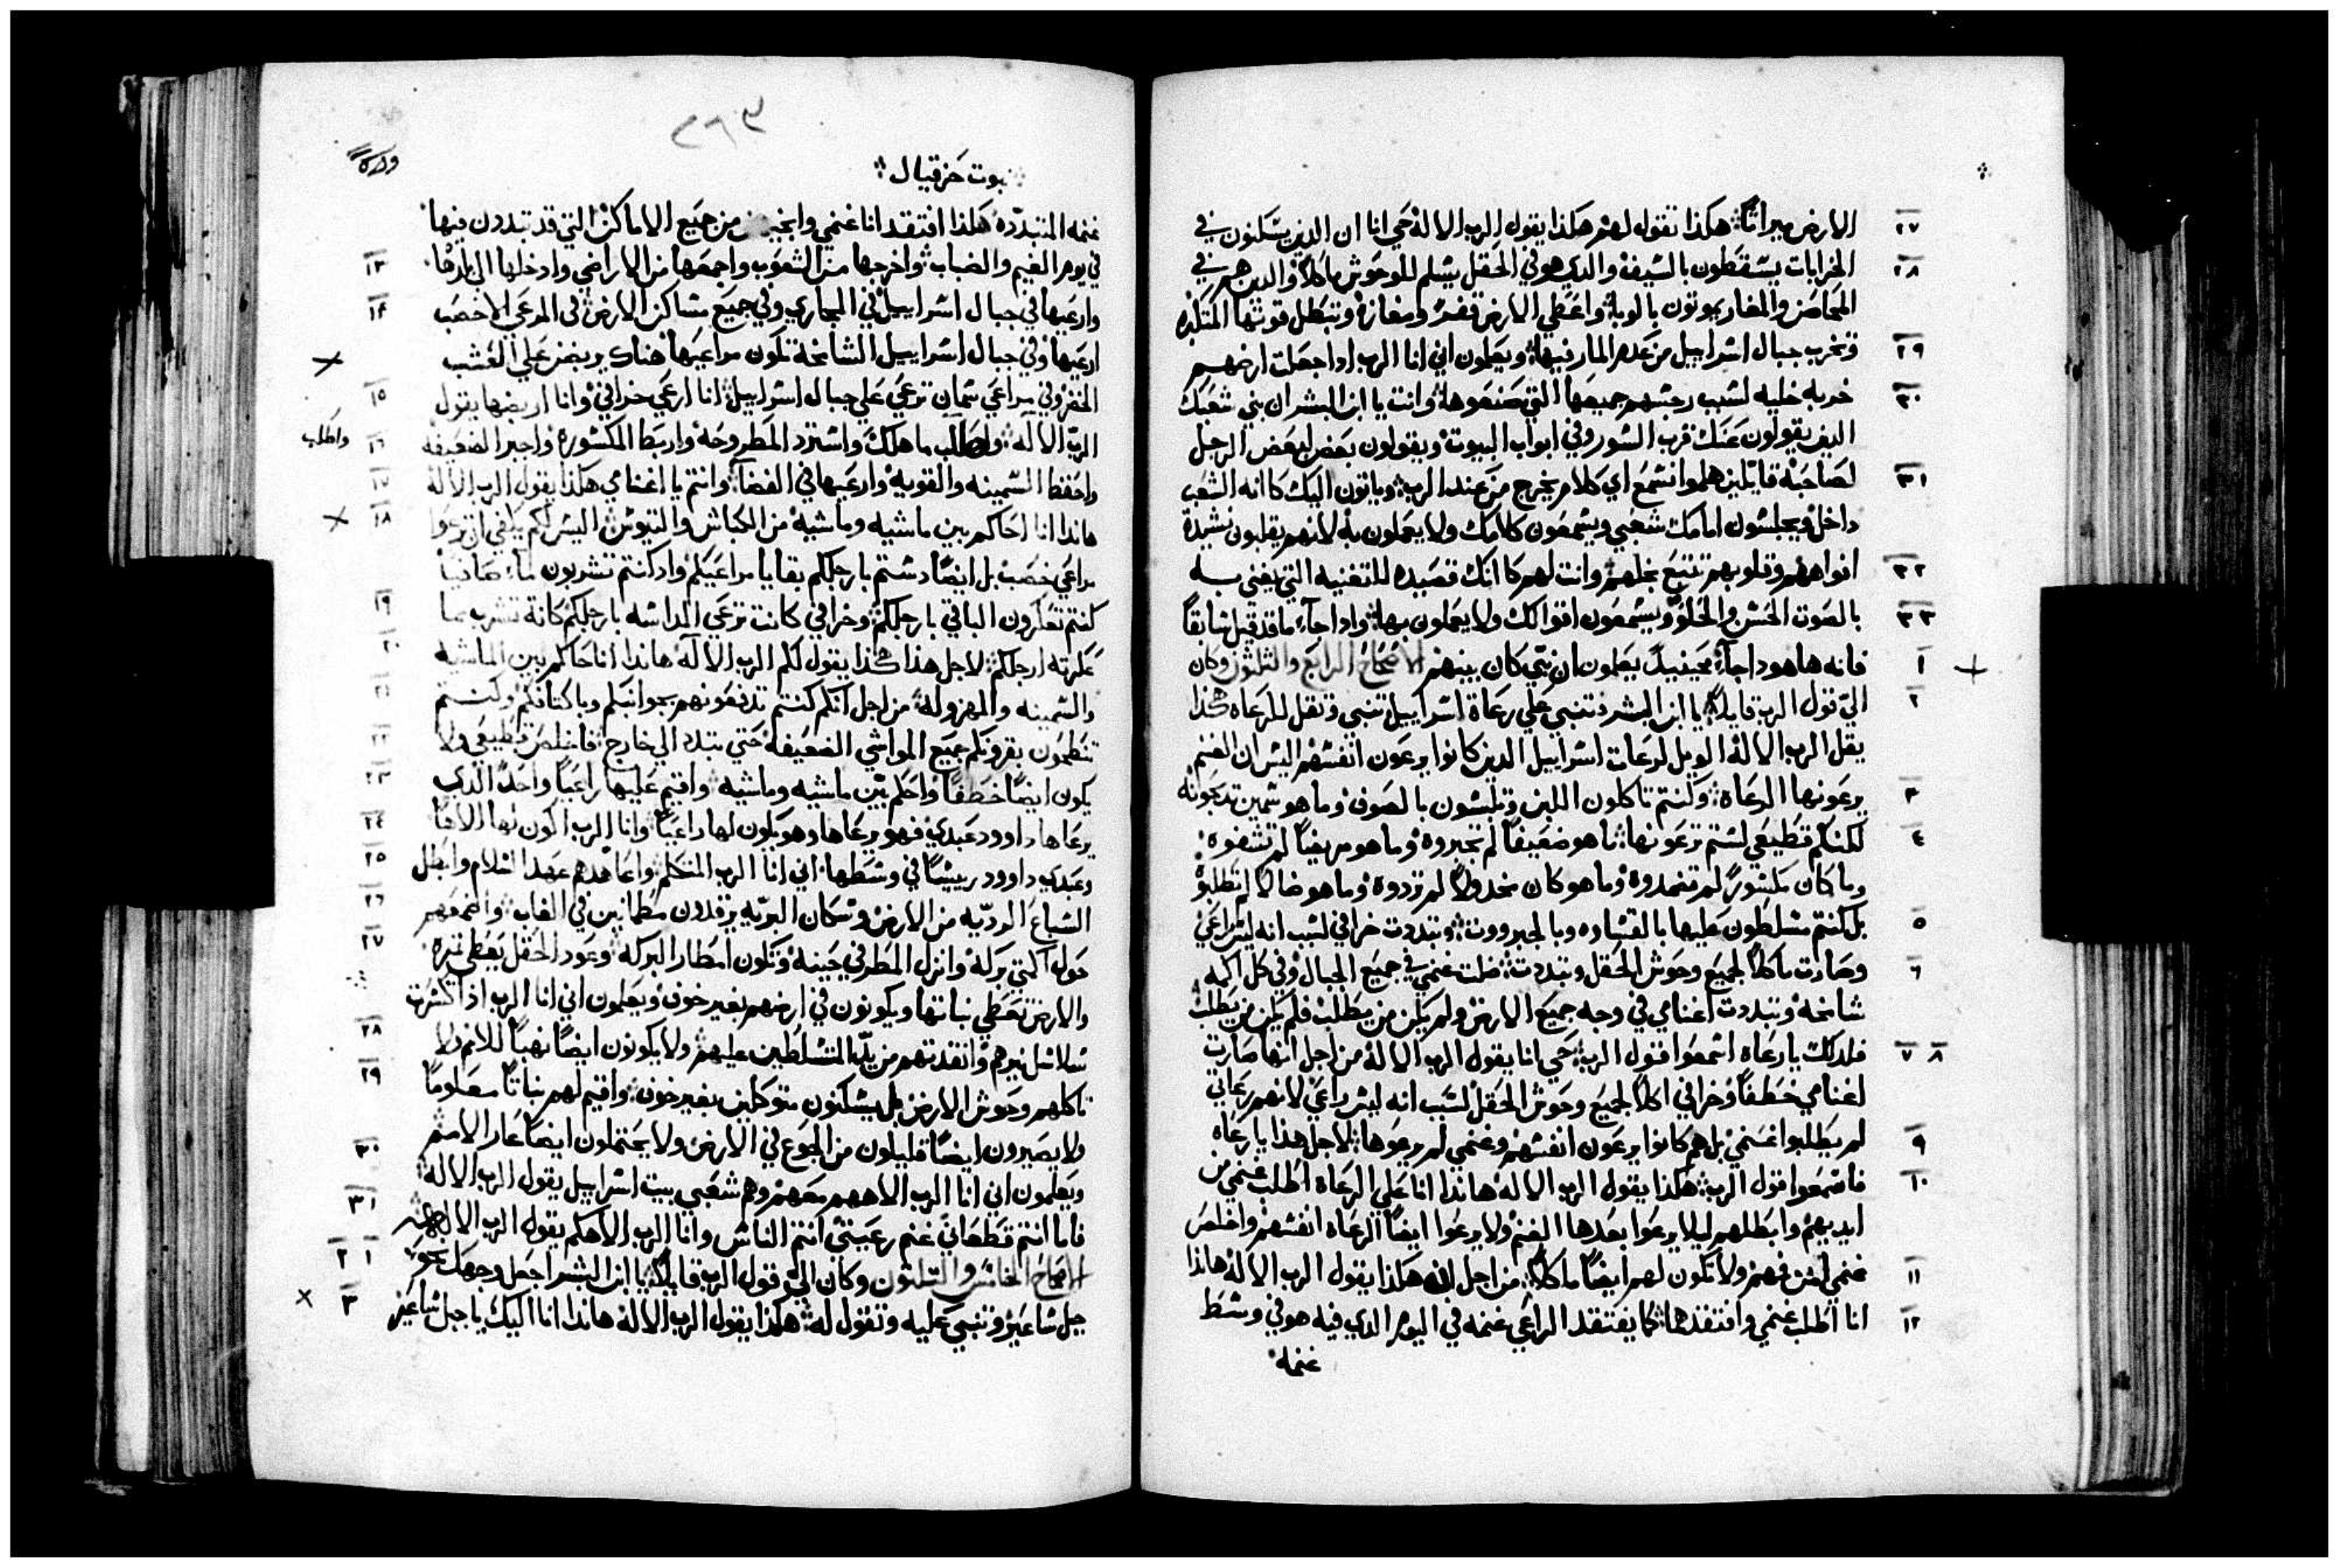 ٢٧ الارض ميراثاً هكذا تقوله لهم هكذا يقول الرب الاله حي انا ان الدين يسكنون في
٢٨ الخرابات يسقطون بالسيف والدي هو في الحقل يسلم للوحوش ماكلاً والدين هم في
المحاصن والمغاير يموتون بالوبا واعطي الارض قفر ومغازه وتبطل قوتها المتكبره
٢٩ وتخرب جبال اسراييل من عدم المار فيها ويعلمون اني انا الرب ادا جعلت ارضهم
٣٠ خربه خليه لسبب رجسهم جميعها التي صنعوها وانت يا ابن البشر ان بني شعبك
الدين يقولون عنك قرب السور وفي ابواب البيوت ويقولون بعض لبعض الرجل
٣١ لصاحبه قايلين هلموا نسمع اي كلام يخرج من عند الرب وياتون اليك كانه الشعب
داخل ويجلسون امامك شعبي ويسمعون كلامك ولا يعملون به لانهم يقلبون نشيدة
٣٢ افواههم وقلوبهم تتبع بخلهم وانت لهم كانك قصيده للتغنيه التي يغني به
٣٣ بالصوت الحسن والحلو ويسمعون اقوالك ولا يعملون بها وادا جاء ما قد قيل سابقاً
١ فانه ها هودا جاء فحينيدٍ يعلمون ان نبي كان بينهم الاصحاح الرابع والثلثون وكان
٢ اليّ قول الرب قايلاً يا ابن البشر تنبي علي رعاة اسراييل تنبي وتقل للرعاه هكذا
يقل الرب الاله الويل لرعات اسراييل الدين كانوا يرعون انفسهم اليس ان الغنم
٣ يرعونها الرعاة وكنتم تاكلون اللبن وتلبسون بالصوف وما هو سمين تدبحونه
٤ لكنكم قطيعي لستم ترعونها ما هو ضعيفاً لم تجبروه وما هو مريضاً لم تشفوه
وما كان مكسوراً لم تضمدوه وما هو كان مخدولاً لم تردوه وما هو ضالاً لم تطلبوه
٥ بل كنتم متسلطون عليها بالقساوه وبالجبرووت وتبددت خرافي لسبب انه ليس راعي
٦ وصارت ماكلاً لجميع وحوش الحقل وتبددت ضلت غنمي في جميع الجبال وفي كل اكمه
شامخه وتبددت اغنامي في وجه جميع الارض ولم يكن من يطلب فلم يكن من يطلب
٧ ٨ فلدلك يا رعاه اسمعوا قول الرب حي انا يقول الرب الاله من اجل انها صارت
اغنامي خطفاً وخرافي اكلاً لجميع وحوش الحقل لسبب انه ليس راعي لانهم رعاتي
٩ لم يطلبوا غنمي بل هم كانوا يرعون انفسهم وغنمي لم يرعوها لاجل هذا يا رعاه
١٠ فاسمعوا قول الرب هكذا يقول الرب الاله هاندا انا علي الرعاة اطلب غنمي من
ايديهم وابطلهم ليلا يرعوا بعدها الغنم ولا يرعوا ايضاً الرعاة انفسهم واخلص
١١ غنمي من فمهم ولا تكون لهم ايضاً ماكلاً من اجل انه هكذا يقول الرب الاله هاندا
١٢ انا اطلب غنمي وافتقدها كما يفتقد الراعي غنمه في اليوم الدي فيه هو في وسط
غنمه
٢٦٣
نبوت حزقيال
غنمه المتبدّده هكذا افتقد انا غنمي من جميع الاماكن التي قد تبددون فيها
١٣ في يوم الغيم والضباب واخرجها من الشعوب واجمعها من الاراضي وادخلها الي ارضها
١٤ وارعيها في جبال اسراييل في المجاري وفي جميع مساكن الارض في المرعي الاخصب
ارعيها وفي جبال اسراييل الشامخة تكون مراعيها هناك يربضن علي العشب
١٥ الخضر وفي مراعي سمان ترعي علي جبال اسراييل انا ارعي خرافي وانا اربضها يقول
١٦ الرب الاله واطلب ما هلك واسترد المطروحة واربط المكسورة واجبر الضعيفه
واطلب
١٧ واحفظ السمينه والقويه وارعيها في القضا وانتم يا اغنامي هكذا يقول الرب الاله
١٨ هاندا انا احاكم بين ماشيه وماشيه من الكباش والتيوس اليس لكم يكفي ان ترعوا
مراعي خصب بل ايضاً دستم بارجلكم بقايا مراعيكم واد كنتم تشربون ماء صافياً
١٩ كنتم تعكرون الباقي بارجلكم وخرافي كانت ترعي المداسه بارجلكم كانة تشرب مما
٢٠ عكرته ارجلكم لاجل هذا هكذا يقول لكم الرب الاله هاندا انا احاكم بين الماشيه
٢١ والسمينه والمهزوله من اجل انكم كنتم تدفعونهم بجوانبكم وباكتافكم وكنتم
٢٢ تنطحون بقرونكم جميع المواشي الضعيفه حتي تبدد الي خارج فاخلص قطيعي ولا
٢٣ يكون ايضاً خطفاً واحكم بين ماشيه وماشيه واقيم عليها راعياً واحدً الدي
٢٤ يرعاها داوود عبدي فهو يرعاها وهو يكون لها راعياً وانا الرب اكون لها الاهاً
٢٥ وعبدي داوود رييساً في وسطها اني انا الرب المتكلم واعاهدهم عهد السلام وابطل
٢٦ السباع الرديّه من الارض وسكان البريه يرقدون مطمانين في الغاب واضعهم
٢٧ حول اكمتي بركه وانزل المطر في حينه وتكون امطار البركه وعود الحقل يعطي ثمره
والارض تعطي نباتها ويكونون في ارضهم بغير خوف ويعلمون اني انا الرب اذا كسرت
٢٨ سلاسل نيرهم وانقدتهم من يد المتسلطين عليهم ولا يكونون ايضاً نهباً للامم ولا
٢٩ تاكلهم وحوش الارض بل يسكنون متوكلين بغير خوف واقيم لهم نباتاً معلوماً
٣٠ ولا يصيرون ايضاً قليلون من الجوع في الارض ولا يحتملون ايضاً عار الامم
ويعلمون اني انا الرب الاههم معهم وهم شعبي بيت اسراييل يقول الرب الاله
٣١ فاما انتم قطعاني غنم رعيتي انتم الناس وانا الرب الاهكم يقول الرب الاله
١ ٢ الاصحاح الخامس والثلثون وكان اليّ قول الرب قايلاً يا ابن البشر اجعل وجهك نحو
٣ جبل ساعير وتنبي عليه وتقول له هكذا يقول الرب الاله هاندا انا اليك يا جبل ساعير